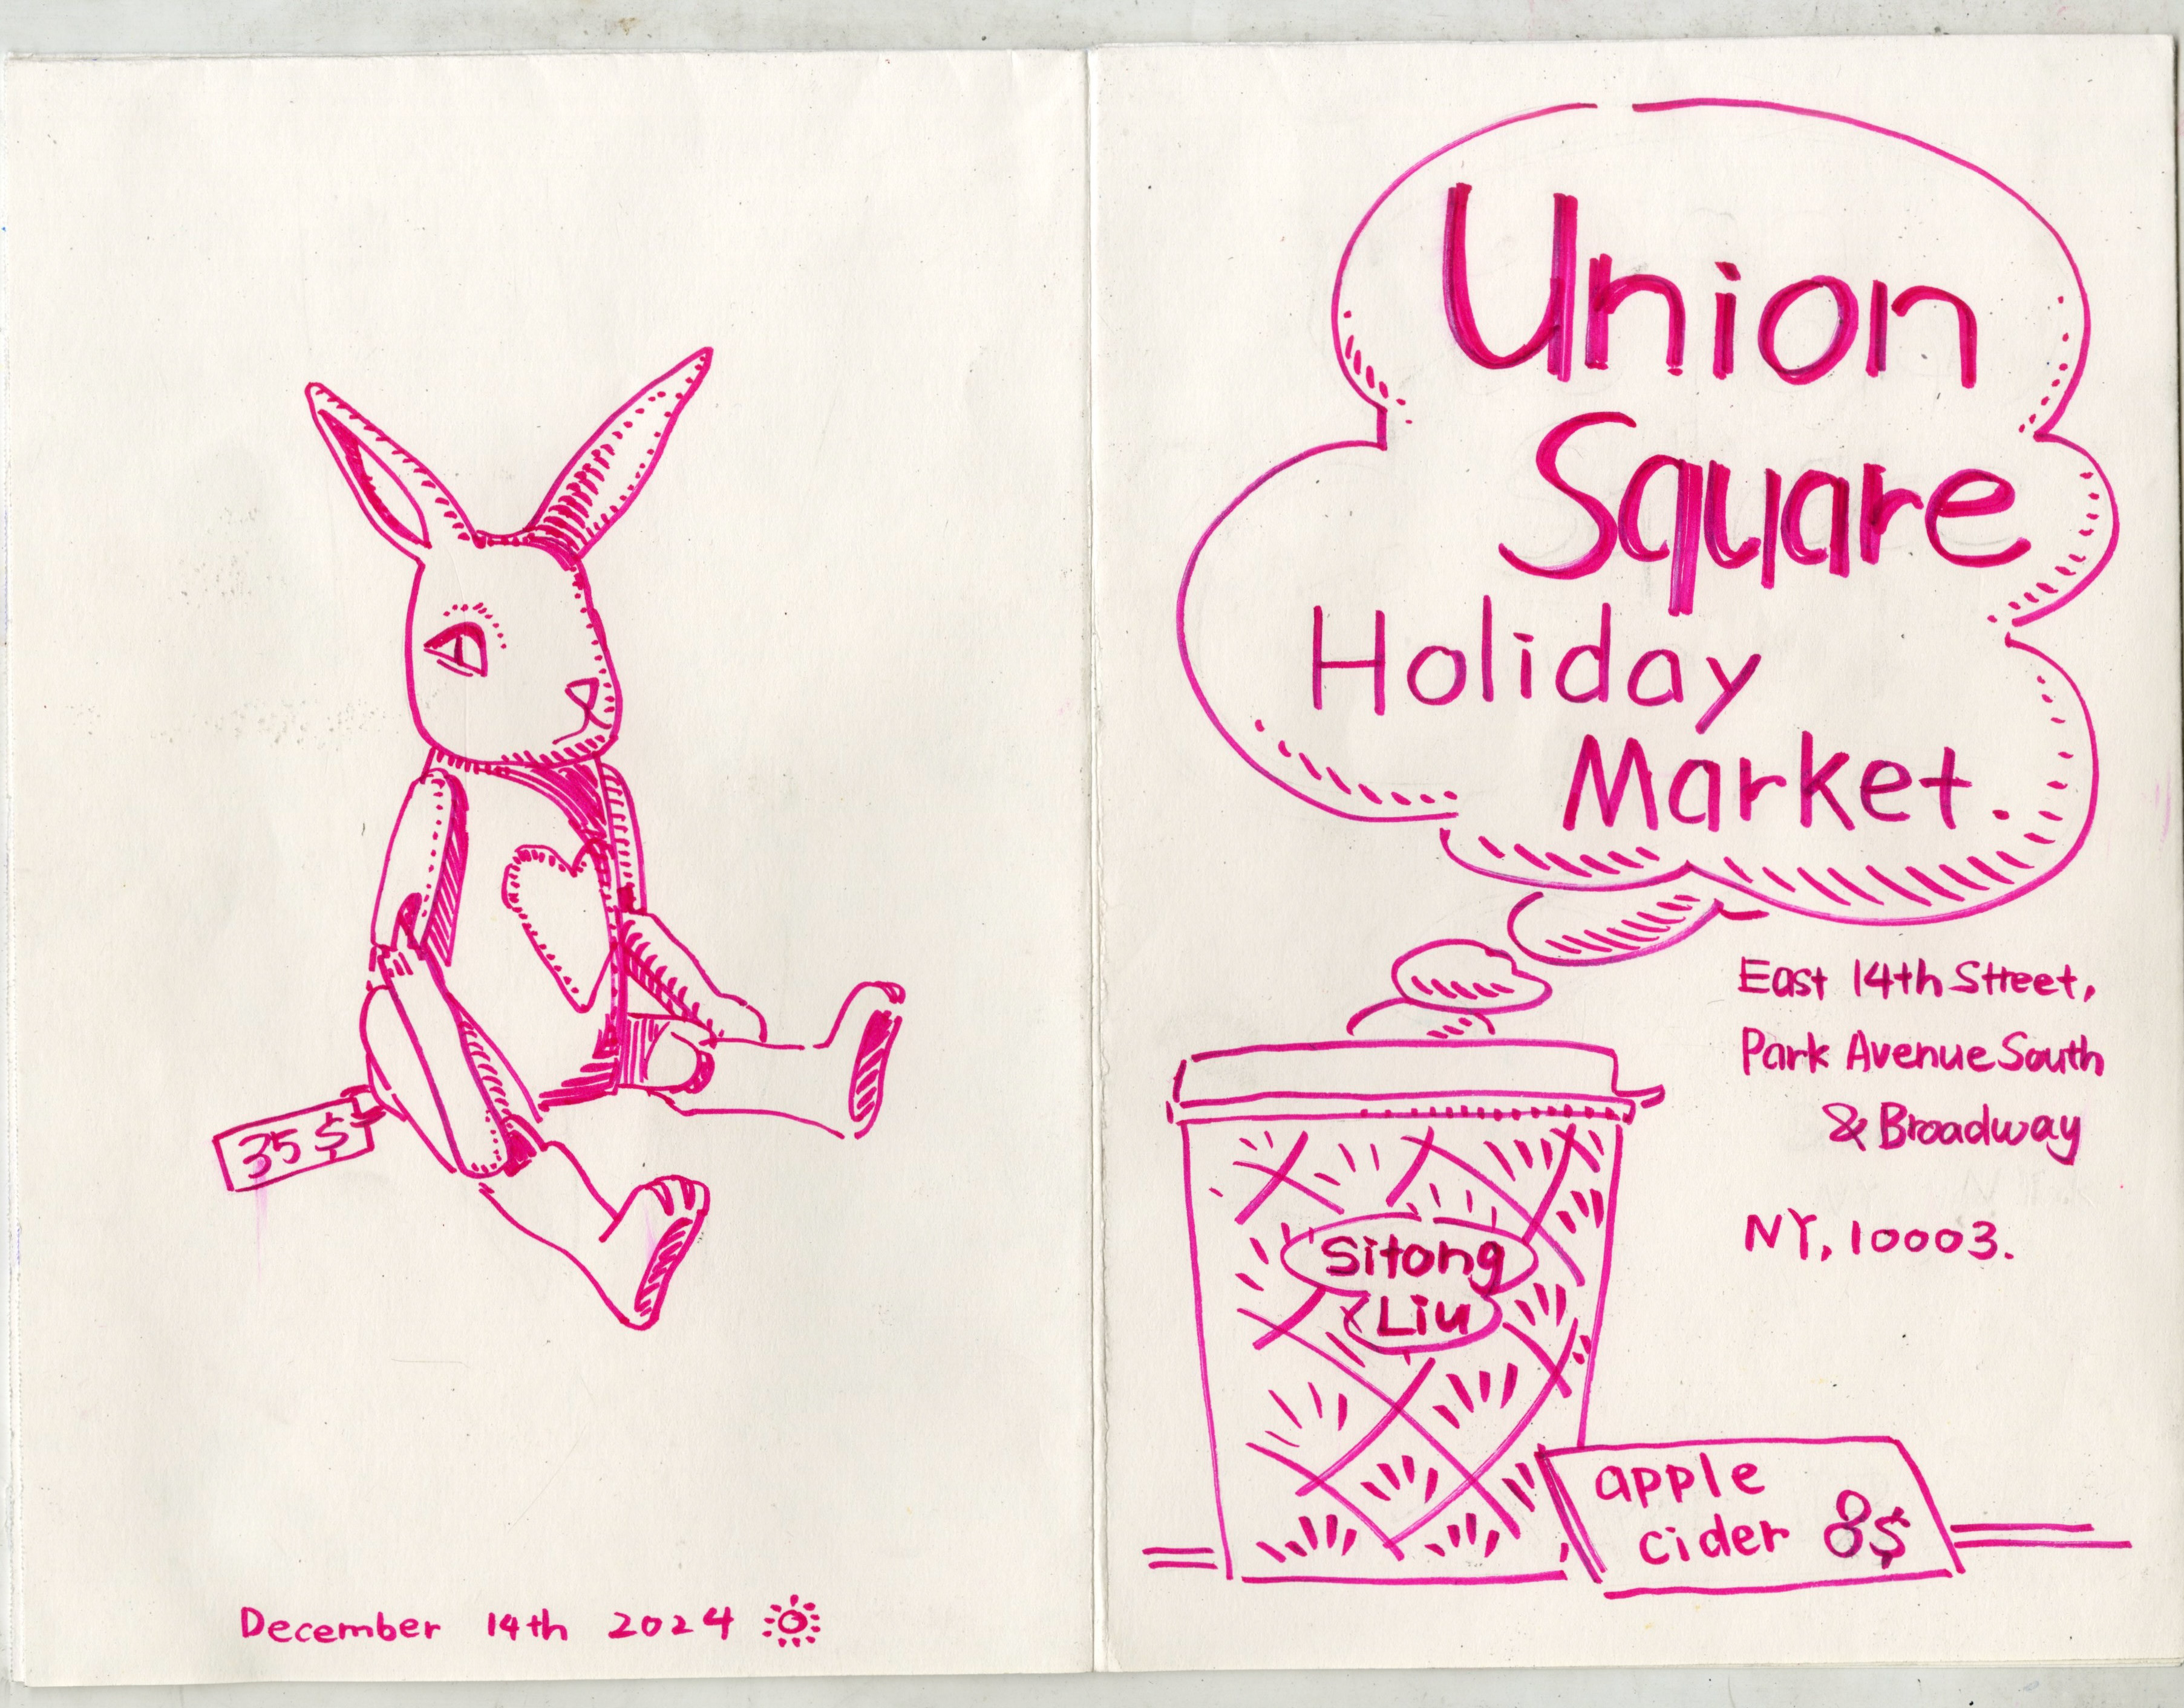 35 $
December 14th 2024
Union
Square
Holiday
Market.
East 14th Street,
Park Avenue South
& Broadway
NY, 10003.
Sitong
Liu
apple
cider 8$